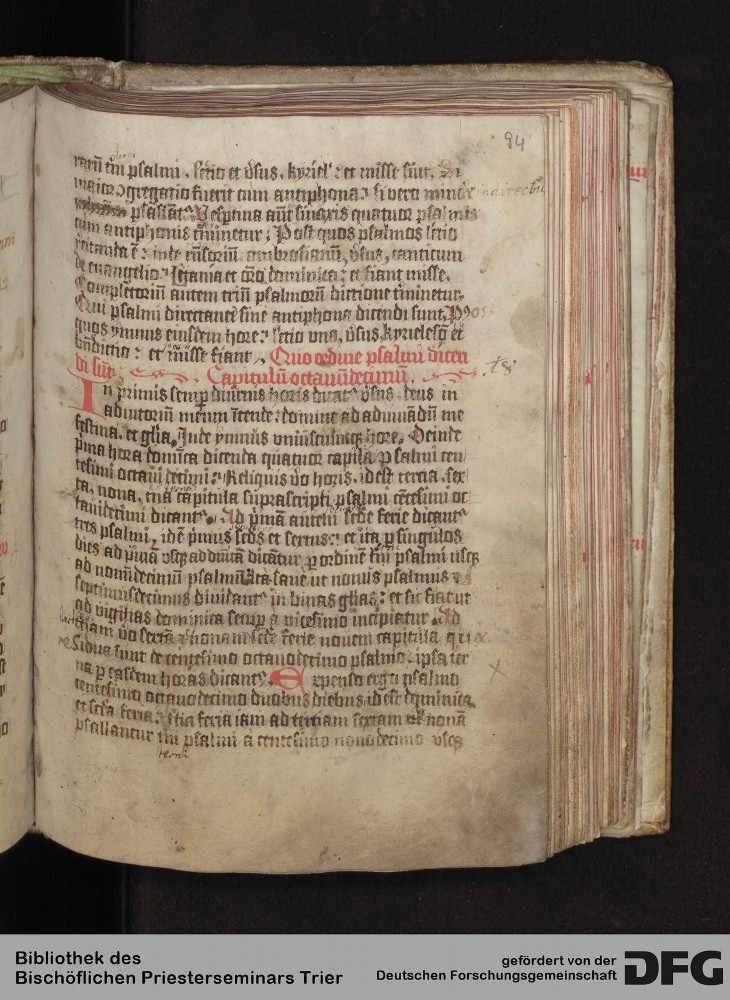 94
rarū tm̄ psalmi. lectio et v̄sus. kyriel': et misse sint. Si
maior congregatio fuerit cum antiphona: si vero minor in directū
psallant'. Vespertina aūt sinaxis quatuor psalmis
cum antiphonis t'minetur; Post quos psalmos lectio
recitanda ē: inde respōsoriū. ambrosianū, v̄sus, canticum
de euangelio. letania et orō dominica: et fiant misse.
Completorium autem triū psalmorū dictione t'minetur.
Qui psalmi directanei sine antiphona dicendi sunt. Post
quos ymnus eiusdem hore: lectio vna, v̄sus, kyrieleson et
bn̄dictio: et misse fiant. Quo ordine psalmi dicen
di sūt. Capitulū octauūdecimū.
18
In primis semp diurnis horis dicat' v̄sus. deus in
adiutoriū meum ītende: domine ad adiuuādū me
festina. et gl̄ia. Inde ymnus vniuscuiusq hore. Deinde
p'ma hora domīca dicenda quatuor capitla psalmi cen
tesimi octaui decimi: Reliquis v̄o horis. id est tercia. sex
ta, nona, t'na capitula suprascripti psalmi cētesimi oc
tauidecimi dicant'. Ad p'mā autem secde ferie dicant'
tres psalmi, id ē p'mus secds et sextus: et ita p singulos
dies ad p'mā vsq ad dnīcā dicātur p ordinē tm̄ psalmi usq
ad nonūdecimū psalmū. Ita sane ut nonus psalmus &
septimusdecimus diuidant' in binas gl̄ias: et sic fiat ut
ad vigilias dominica semp a vicesimo incipiatur. Ad
tertiam v̄o sextā & nonam secde ferie nouem capitula que
residua sunt de centesimo octauodecimo psalmo. ipsa ter
na p easdem horas dicant'. Expenso ergo psalmo
centesimo octauodecimo duobus diebus id est dominica
et secda feria: t'tia feria iam ad tertiam sextam et nonā
psallantur t'ni psalmi a centesimo nonodecimo vsq
terni
Bibliothek des
Bischöflichen Priesterseminars Trier
gefördert von der
Deutschen Forschungsgemeinschaft
DFG